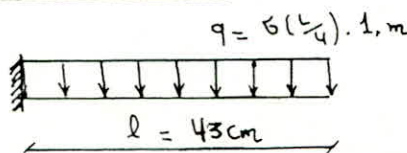 q = σ(L/4) . 1, m
l = 43 cm